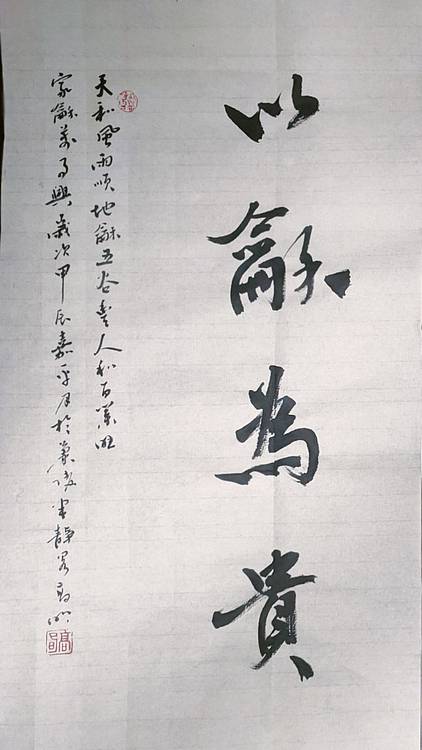 以龢為貴
天和風雨順地龢五谷豐人和百業旺
家龢萬事興歲次甲辰嘉平月於